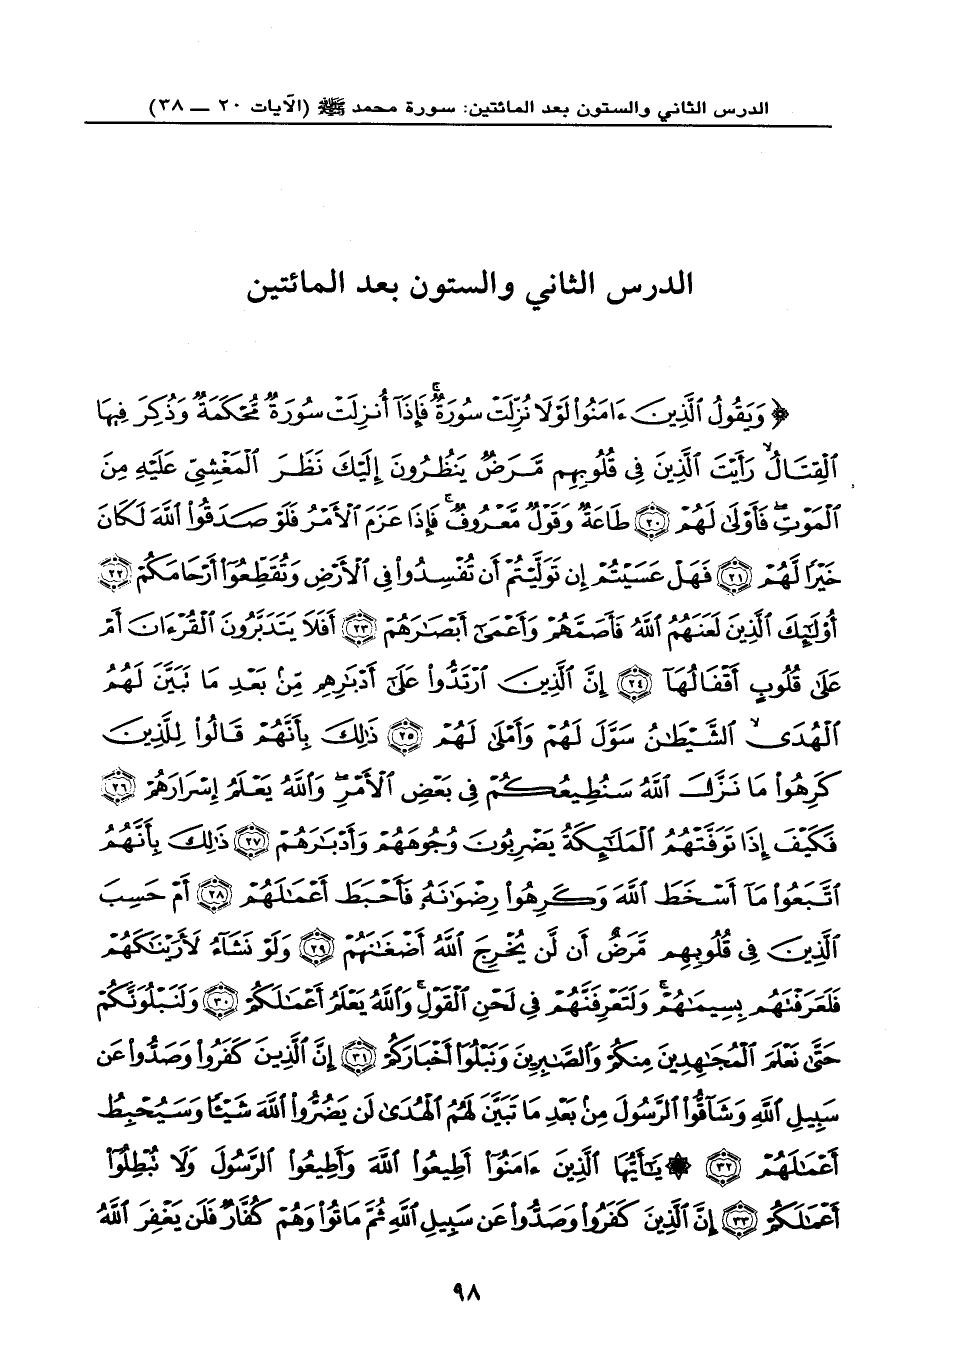 الدرس الثاني والستون بعد المائتين: سورة محمد ﷺ (الآيات ٢٠ — ٣٨)
الدرس الثاني والستون بعد المائتين
﴿ وَيَقُولُ ٱلَّذِينَ ءَامَنُوا۟ لَوْلَا نُزِّلَتْ سُورَةٌ ۖ فَإِذَآ أُنزِلَتْ سُورَةٌ مُّحْكَمَةٌ وَذُكِرَ فِيهَا
ٱلْقِتَالُ ۙ رَأَيْتَ ٱلَّذِينَ فِى قُلُوبِهِم مَّرَضٌ يَنظُرُونَ إِلَيْكَ نَظَرَ ٱلْمَغْشِىِّ عَلَيْهِ مِنَ
ٱلْمَوْتِ ۖ فَأَوْلَىٰ لَهُمْ ﴿٢٠﴾ طَاعَةٌ وَقَوْلٌ مَّعْرُوفٌ ۚ فَإِذَا عَزَمَ ٱلْأَمْرُ فَلَوْ صَدَقُوا۟ ٱللَّهَ لَكَانَ
خَيْرًا لَّهُمْ ﴿٢١﴾ فَهَلْ عَسَيْتُمْ إِن تَوَلَّيْتُمْ أَن تُفْسِدُوا۟ فِى ٱلْأَرْضِ وَتُقَطِّعُوٓا۟ أَرْحَامَكُمْ ﴿٢٢﴾
أُو۟لَٰٓئِكَ ٱلَّذِينَ لَعَنَهُمُ ٱللَّهُ فَأَصَمَّهُمْ وَأَعْمَىٰٓ أَبْصَٰرَهُمْ ﴿٢٣﴾ أَفَلَا يَتَدَبَّرُونَ ٱلْقُرْءَانَ أَمْ
عَلَىٰ قُلُوبٍ أَقْفَالُهَآ ﴿٢٤﴾ إِنَّ ٱلَّذِينَ ٱرْتَدُّوا۟ عَلَىٰٓ أَدْبَٰرِهِم مِّنۢ بَعْدِ مَا تَبَيَّنَ لَهُمُ
ٱلْهُدَى ۙ ٱلشَّيْطَٰنُ سَوَّلَ لَهُمْ وَأَمْلَىٰ لَهُمْ ﴿٢٥﴾ ذَٰلِكَ بِأَنَّهُمْ قَالُوا۟ لِلَّذِينَ
كَرِهُوا۟ مَا نَزَّلَ ٱللَّهُ سَنُطِيعُكُمْ فِى بَعْضِ ٱلْأَمْرِ ۖ وَٱللَّهُ يَعْلَمُ إِسْرَارَهُمْ ﴿٢٦﴾
فَكَيْفَ إِذَا تَوَفَّتْهُمُ ٱلْمَلَٰٓئِكَةُ يَضْرِبُونَ وُجُوهَهُمْ وَأَدْبَٰرَهُمْ ﴿٢٧﴾ ذَٰلِكَ بِأَنَّهُمُ
ٱتَّبَعُوا۟ مَآ أَسْخَطَ ٱللَّهَ وَكَرِهُوا۟ رِضْوَٰنَهُۥ فَأَحْبَطَ أَعْمَٰلَهُمْ ﴿٢٨﴾ أَمْ حَسِبَ
ٱلَّذِينَ فِى قُلُوبِهِم مَّرَضٌ أَن لَّن يُخْرِجَ ٱللَّهُ أَضْغَٰنَهُمْ ﴿٢٩﴾ وَلَوْ نَشَآءُ لَأَرَيْنَٰكَهُمْ
فَلَعَرَفْتَهُم بِسِيمَٰهُمْ ۚ وَلَتَعْرِفَنَّهُمْ فِى لَحْنِ ٱلْقَوْلِ ۚ وَٱللَّهُ يَعْلَمُ أَعْمَٰلَكُمْ ﴿٣٠﴾ وَلَنَبْلُوَنَّكُمْ
حَتَّىٰ نَعْلَمَ ٱلْمُجَٰهِدِينَ مِنكُمْ وَٱلصَّٰبِرِينَ وَنَبْلُوَا۟ أَخْبَارَكُمْ ﴿٣١﴾ إِنَّ ٱلَّذِينَ كَفَرُوا۟ وَصَدُّوا۟ عَن
سَبِيلِ ٱللَّهِ وَشَآقُّوا۟ ٱلرَّسُولَ مِنۢ بَعْدِ مَا تَبَيَّنَ لَهُمُ ٱلْهُدَىٰ لَن يَضُرُّوا۟ ٱللَّهَ شَيْـًٔا وَسَيُحْبِطُ
أَعْمَٰلَهُمْ ﴿٣٢﴾ ۞ يَٰٓأَيُّهَا ٱلَّذِينَ ءَامَنُوٓا۟ أَطِيعُوا۟ ٱللَّهَ وَأَطِيعُوا۟ ٱلرَّسُولَ وَلَا تُبْطِلُوٓا۟
أَعْمَٰلَكُمْ ﴿٣٣﴾ إِنَّ ٱلَّذِينَ كَفَرُوا۟ وَصَدُّوا۟ عَن سَبِيلِ ٱللَّهِ ثُمَّ مَاتُوا۟ وَهُمْ كُفَّارٌ فَلَن يَغْفِرَ ٱللَّهُ
٩٨